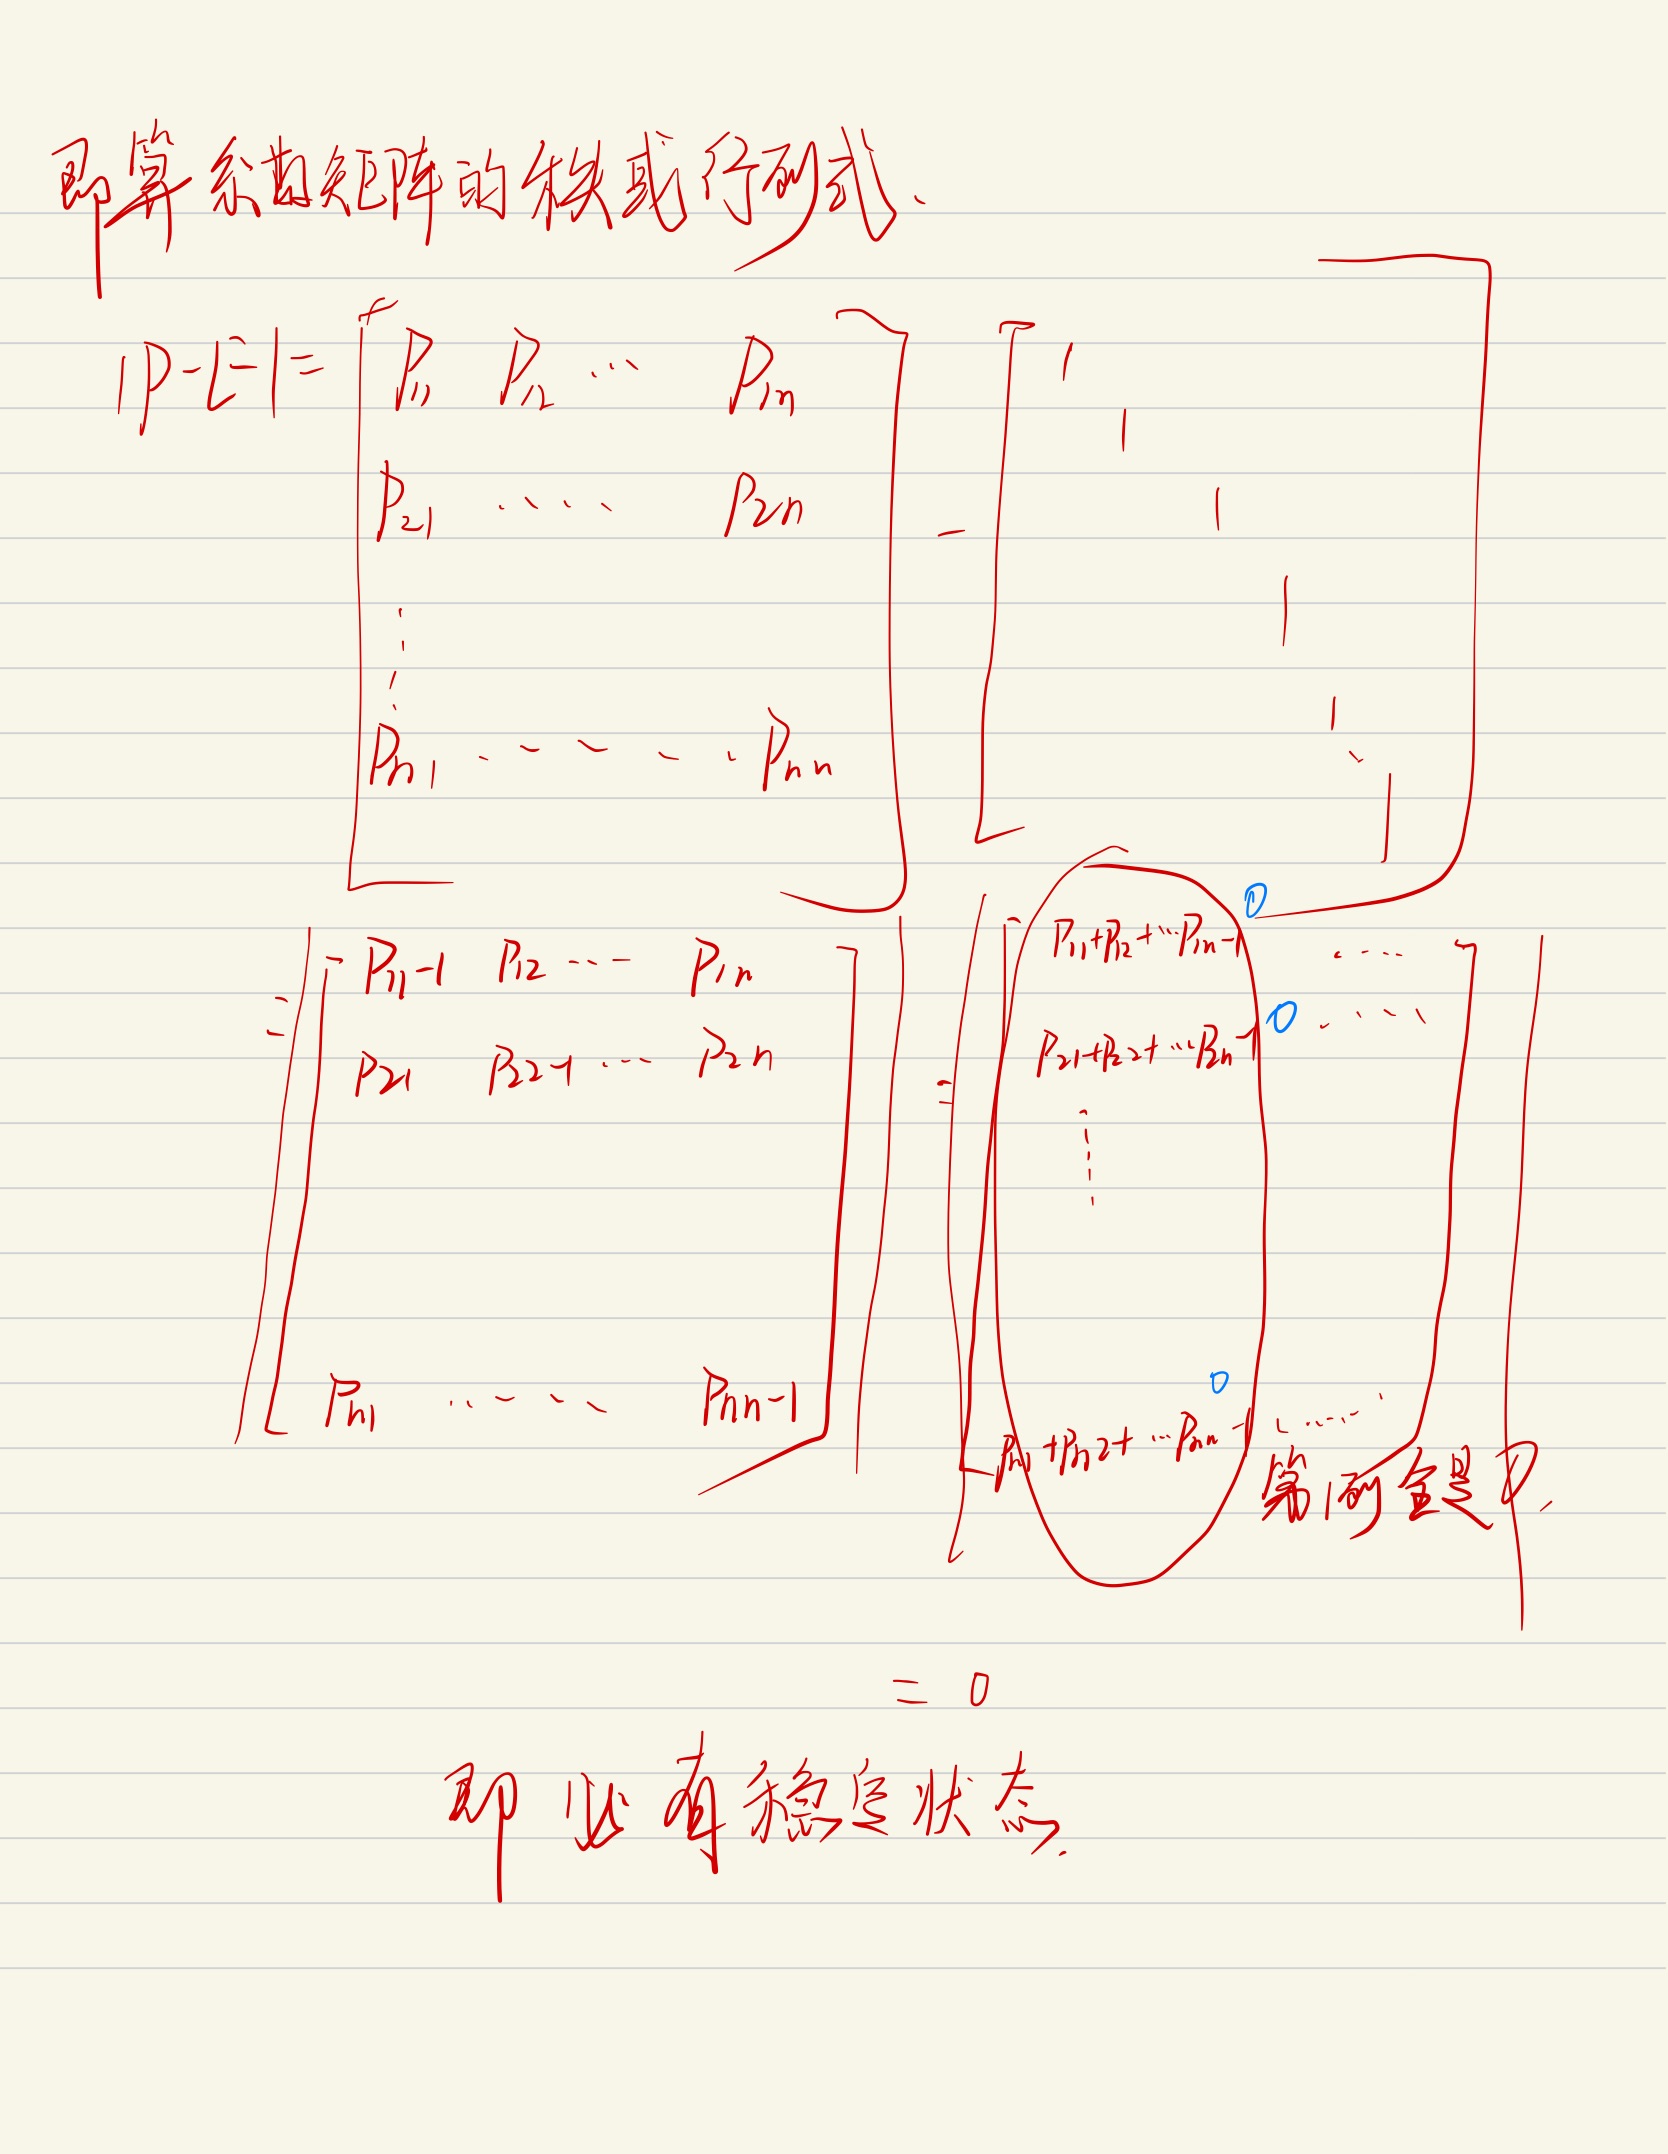 即算系数矩阵的秩或行列式.
|P-E|= P11 P12 ... P1n
1
1
P21 .... P2n
-
1
1
1
Pn1 ...... Pnn
1
= P11-1 P12 ... P1n
P21 P22-1 ... P2n
Pn1 .... Pnn-1
= P11+P12+...P1n-1 0 ....
P21+P22+...P2n-1 0 ....
Pn1+Pn2+...Pnn-1 0 ......
第1列全是0.
= 0
即必有稳定状态.